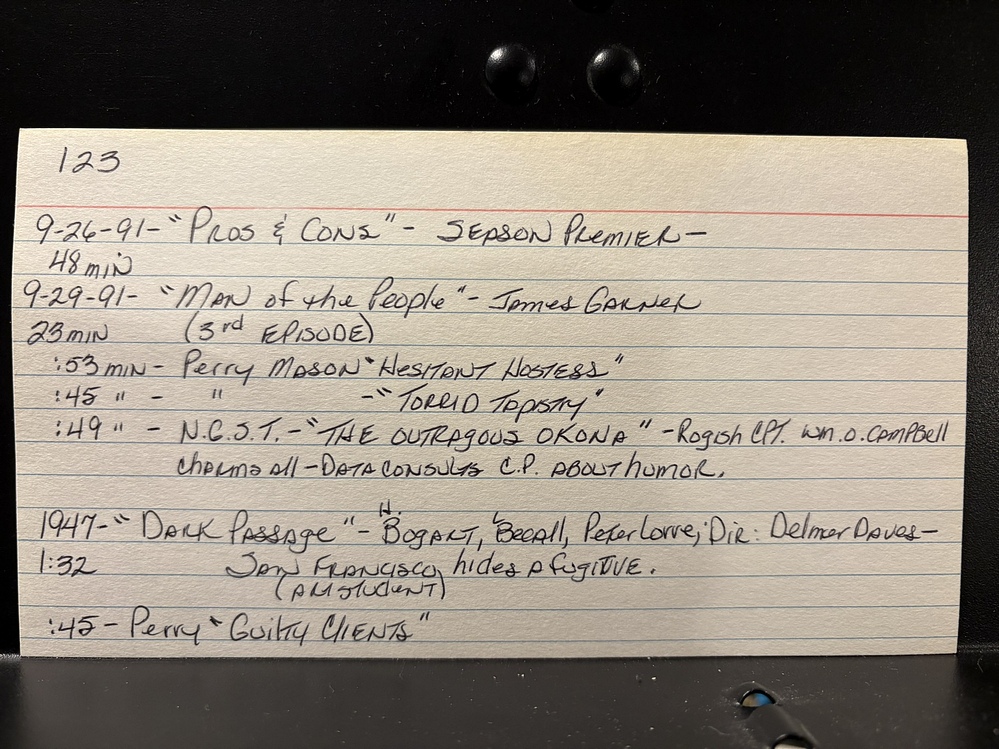 123
9-26-91- "Pros & Cons" - Season Premier-
48 min
9-29-91- "Man of the People" - James Garner
23 min (3rd Episode)
:53 min - Perry Mason "Hesitant Hostess"
:45 " - " - "Torrid Tapistry"
:49 " - N.G.S.T. - "The Outragous Okona" - Rogish Cpt. Wm. O. Campbell
charms all - Data consults C.P. about humor.
1947- "Dark Passage" - H. Bogart, L. Bacall, Peter Lorre; Dir: Delmer Daves-
1:32 San Francisco hides a fugitive.
(art student)
:45 - Perry "Guilty Clients"